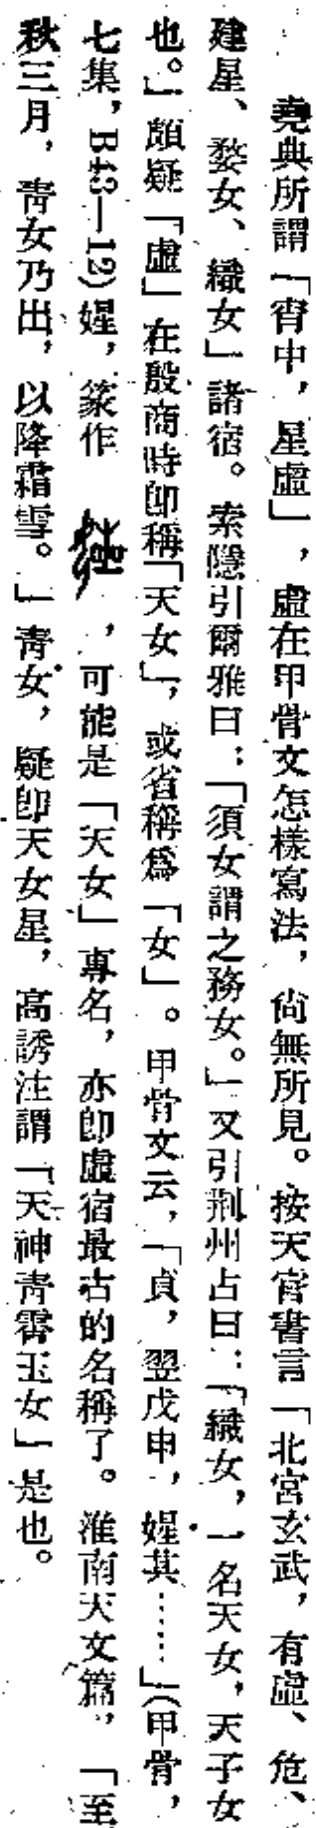 堯典所謂「宵中，星虛」，虛在甲骨文怎樣寫法，尙無所見。按天官書言「北宮玄武，有虛、危、
建星、婺女、織女」諸宿。索隱引爾雅曰：「須女謂之務女。」又引荆州占曰：「織女，一名天女，天子女
也。」頗疑「虛」在殷商時卽稱「天女」，或省稱爲「女」。甲骨文云，「貞，翌戊申，媓其……」（甲骨，
七集，B43—12）媓，篆作　，可能是「天女」專名，亦卽虛宿最古的名稱了。淮南天文篇，「至
秋三月，靑女乃出，以降霜雪。」靑女，疑卽天女星，高誘注謂「天神靑霄玉女」是也。